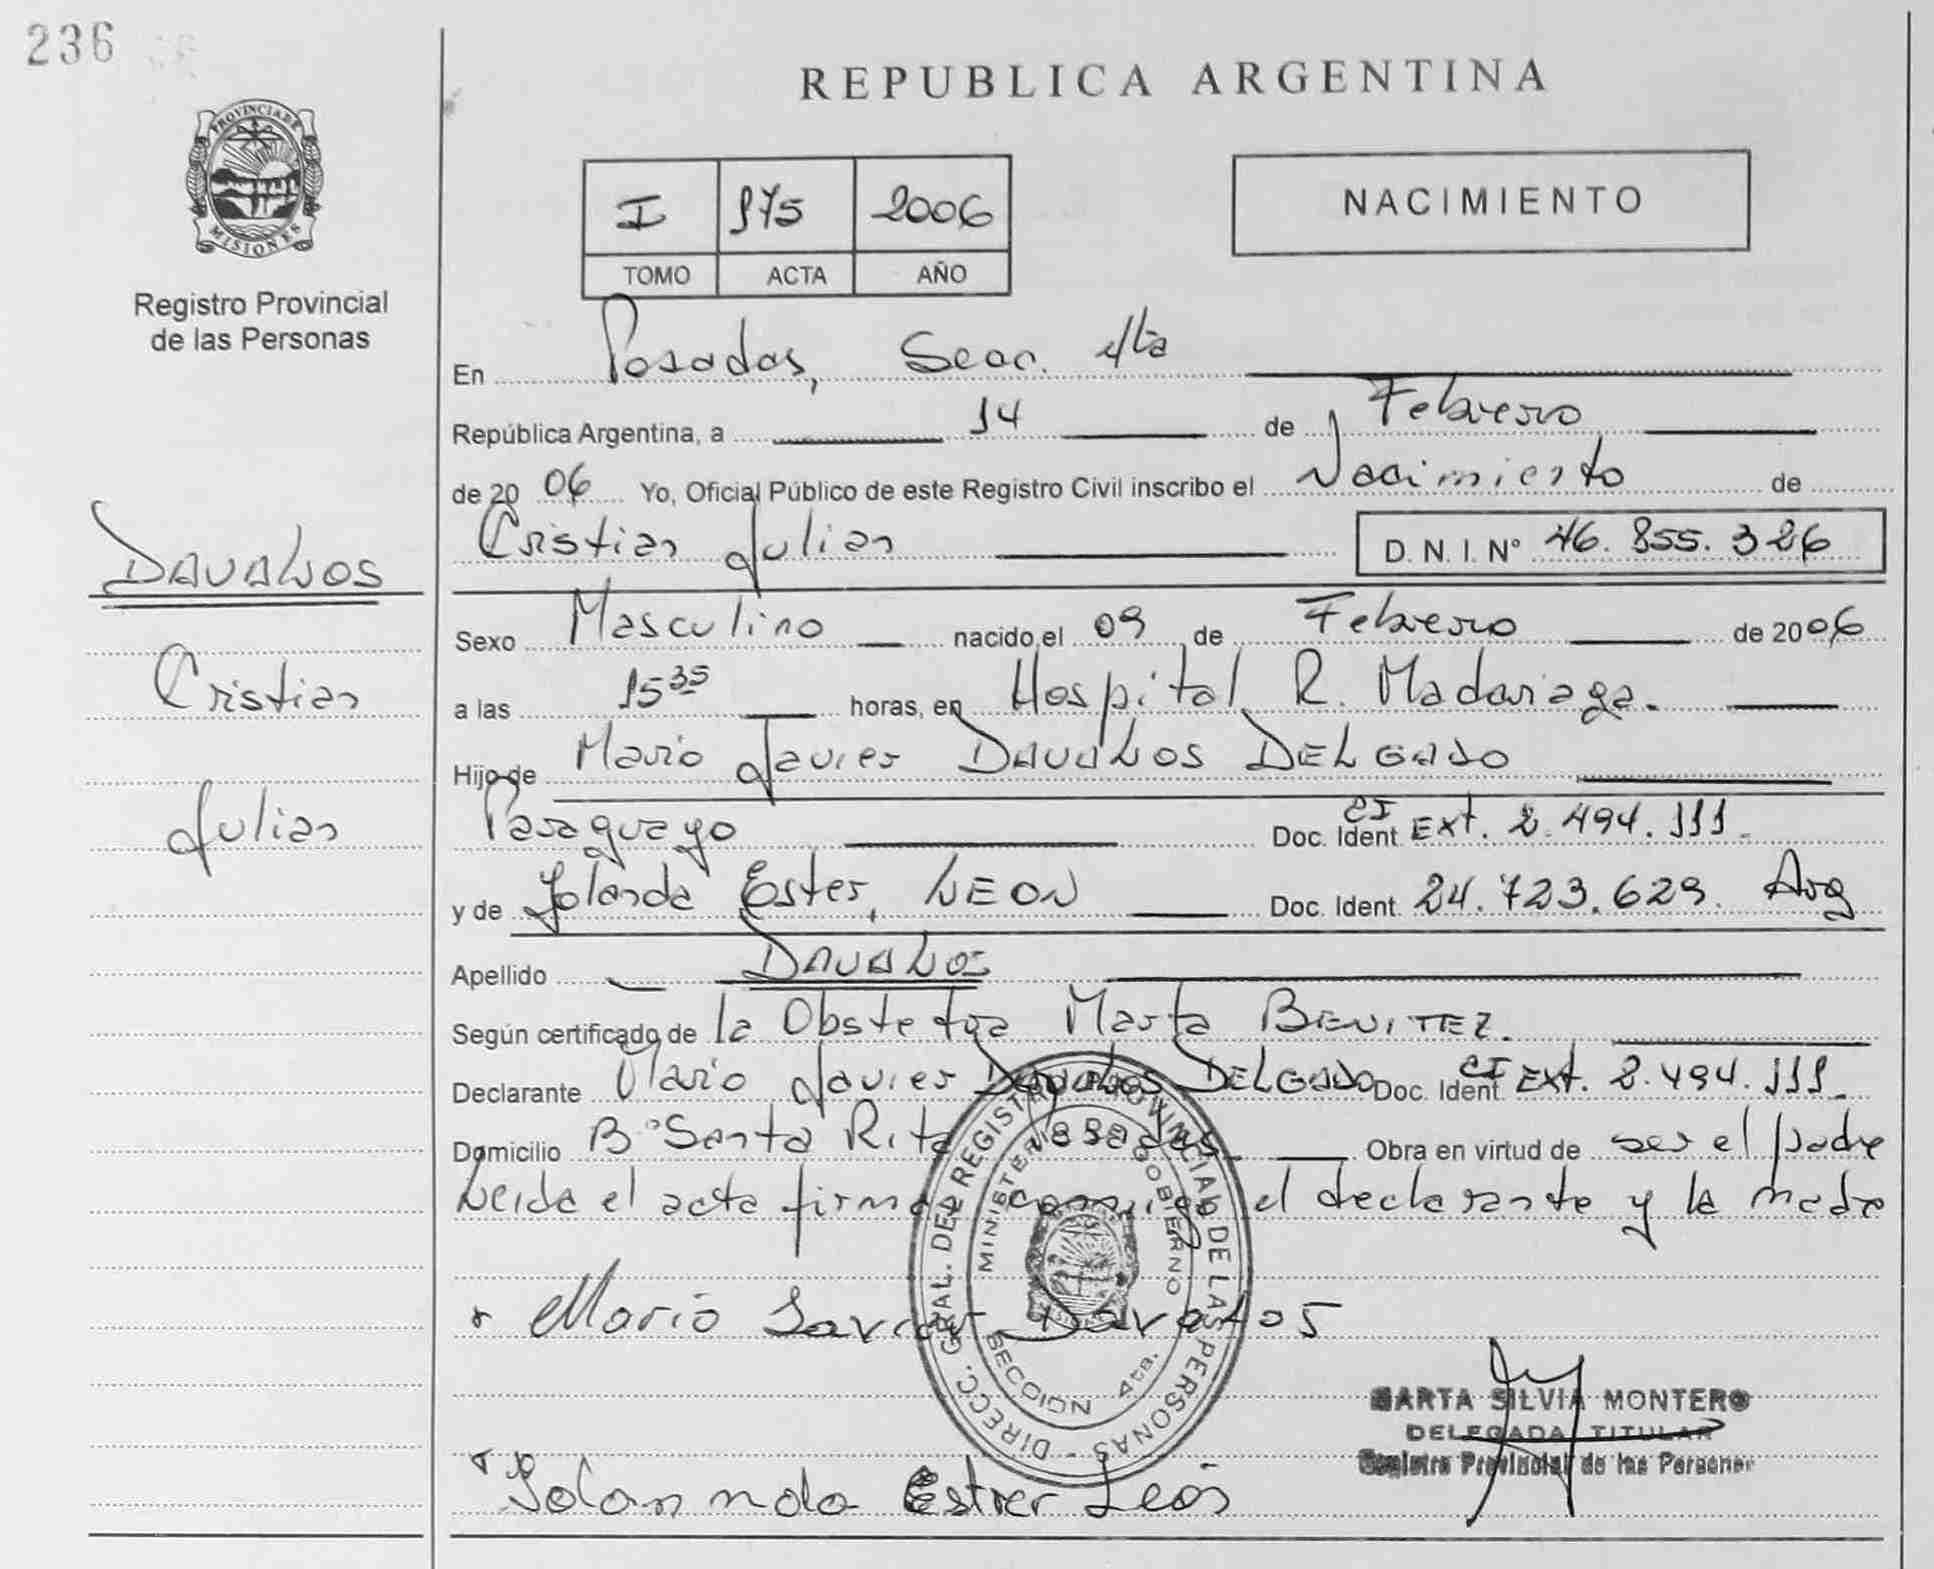 236
REPUBLICA ARGENTINA
PROVINCIA DE
MISIONES
Registro Provincial
de las Personas
I 175 2006
TOMO ACTA AÑO
NACIMIENTO
En Posadas, Secc. 4ta
República Argentina, a 14 de Febrero
de 20 06 Yo, Oficial Público de este Registro Civil inscribo el Nacimiento de
Cristian Julian D. N. I. N° 46.855.326
DAVALOS
Cristian
Julian
Sexo Masculino nacido el 09 de Febrero de 2006
a las 15 35 horas, en Hospital R. Madariaga.
Hijo de Mario Javier DAVALOS DELGADO
Paraguayo Doc. Ident. CI Ext. 2.494.111.
y de Yolanda Ester, LEON Doc. Ident. 24.723.629. Arg
Apellido DAVALOS
Según certificado de la Obstetra Marta BENITEZ.
Declarante Mario Javier Davalos DELGADO Doc. Ident. CI Ext. 2.494.111.
Domicilio B° Santa Rita Posadas Obra en virtud de ser el padre
Leida el acta firma conmigo el declarante y la madre
Mario Javier Davalos
DIRECC. GRAL. DEL REGISTRO PROVINCIAL DE LAS PERSONAS -
MINISTERIO GOBIERNO
SECCION 4ta.
MARTA SILVIA MONTERO
DELEGADA TITULAR
Registro Provincial de las Personas
Yolannda Estrer León